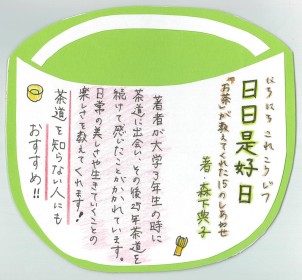 にちにち これ こうじつ
日日是好日
「お茶」が教えてくれた15のしあわせ
著・森下典子
著者が大学3年生の時に
茶道に出会い、その後25年茶道を
続けて感じたことがかかれています。
日常の美しさや生きていくことの
楽しさを教えてくれます!
茶道を知らない人にも
おすすめ!!